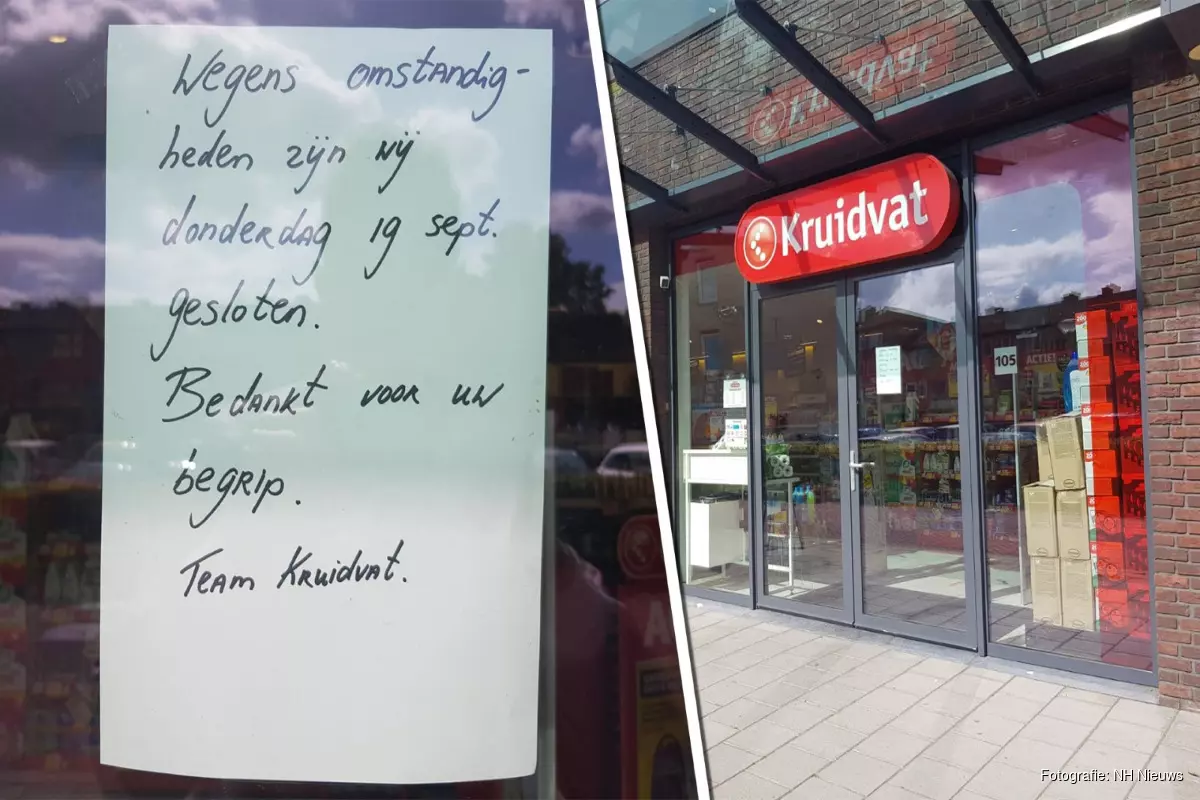 Wegens omstandig-
heden zijn wij
donderdag 19 sept.
gesloten.
Bedankt voor uw
begrip.
Team Kruidvat.
Kruidvat
105
ACTIE!
Fotografie: NH Nieuws